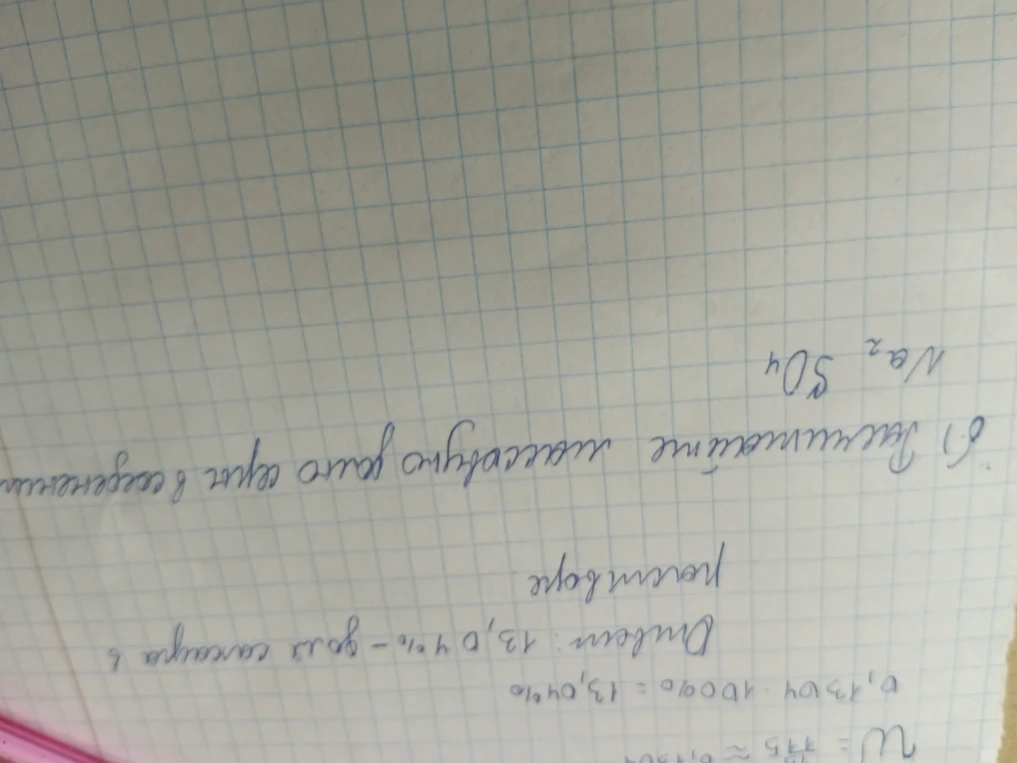 W = 15/115 ≈ 0,1304
0,1304 · 100% = 13,04%
Ответ: 13,04% - доля сахара в
растворе
б) Рассчитайте массовую долю серы в соединении
Na₂SO₄